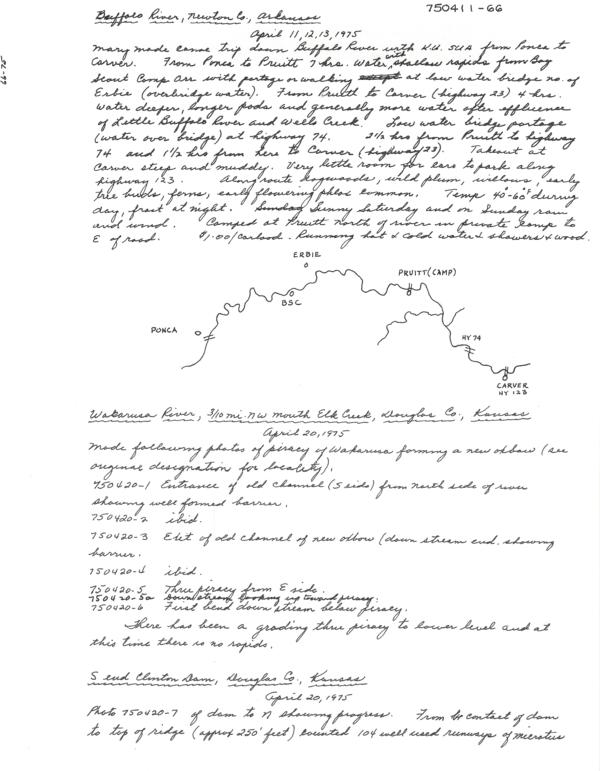 750411-66
66-75
Buffalo River, Newton Co., Arkansas
April 11, 12, 13, 1975
Mary made canoe trip down Buffalo River with K.U. SUA from Ponca to
Carver. From Ponca to Pruitt 7 hrs. Water, with shallow rapids from Boy
Scout Camp are with portage or walking at low water bridge no. of
Erbie (overbridge water). From Pruitt to Carver (highway 23) 4 hrs.
Water deeper, longer pools and generally more water after affluence
of Little Buffalo River and Wells Creek. Low water bridge portage
(water over bridge) at highway 74. 2½ hrs from Pruitt to highway
74 and 1½ hrs from here to Carver (highway 23). Takeout at
Carver steep and muddy. Very little room for cars to park along
highway 123. Along route dogwoods, wild plum, willows, early
tree buds, ferns, early flowering phlox common. Temp 40°-60°F during
day, frost at night. Sunday Sunny Saturday and on Sunday rain
and wind. Camped at Pruitt north of river in private camp to
E of road. $1.00/carload. Running hot & cold water & showers & wood.
ERBIE
PRUITT (CAMP)
BSC
PONCA
HY 74
CARVER
HY 123
Wakarusa River, 3/10 mi. NW mouth Elk Creek, Douglas Co., Kansas
April 20, 1975
Made following photos of piracy of Wakarusa forming a new oxbow (see
original designation for locality).
750420-1 Entrance of old channel (S side) from north side of river
showing well formed barrier.
750420-2 ibid.
750420-3 Exit of old channel of new oxbow (down stream end. showing
barrier.
750420-4 ibid.
750420-5 Thru piracy from E side.
750420-5a Downstream looking up toward piracy.
750420-6 First bend down stream below piracy.
There has been a grading thru piracy to lower level and at
this time there is no rapids.
S end Clinton Dam, Douglas Co., Kansas
April 20, 1975
Photo 750420-7 of dam to N showing progress. From contact of dam
to top of ridge (approx 250 feet) counted 104 well used runways of microtus